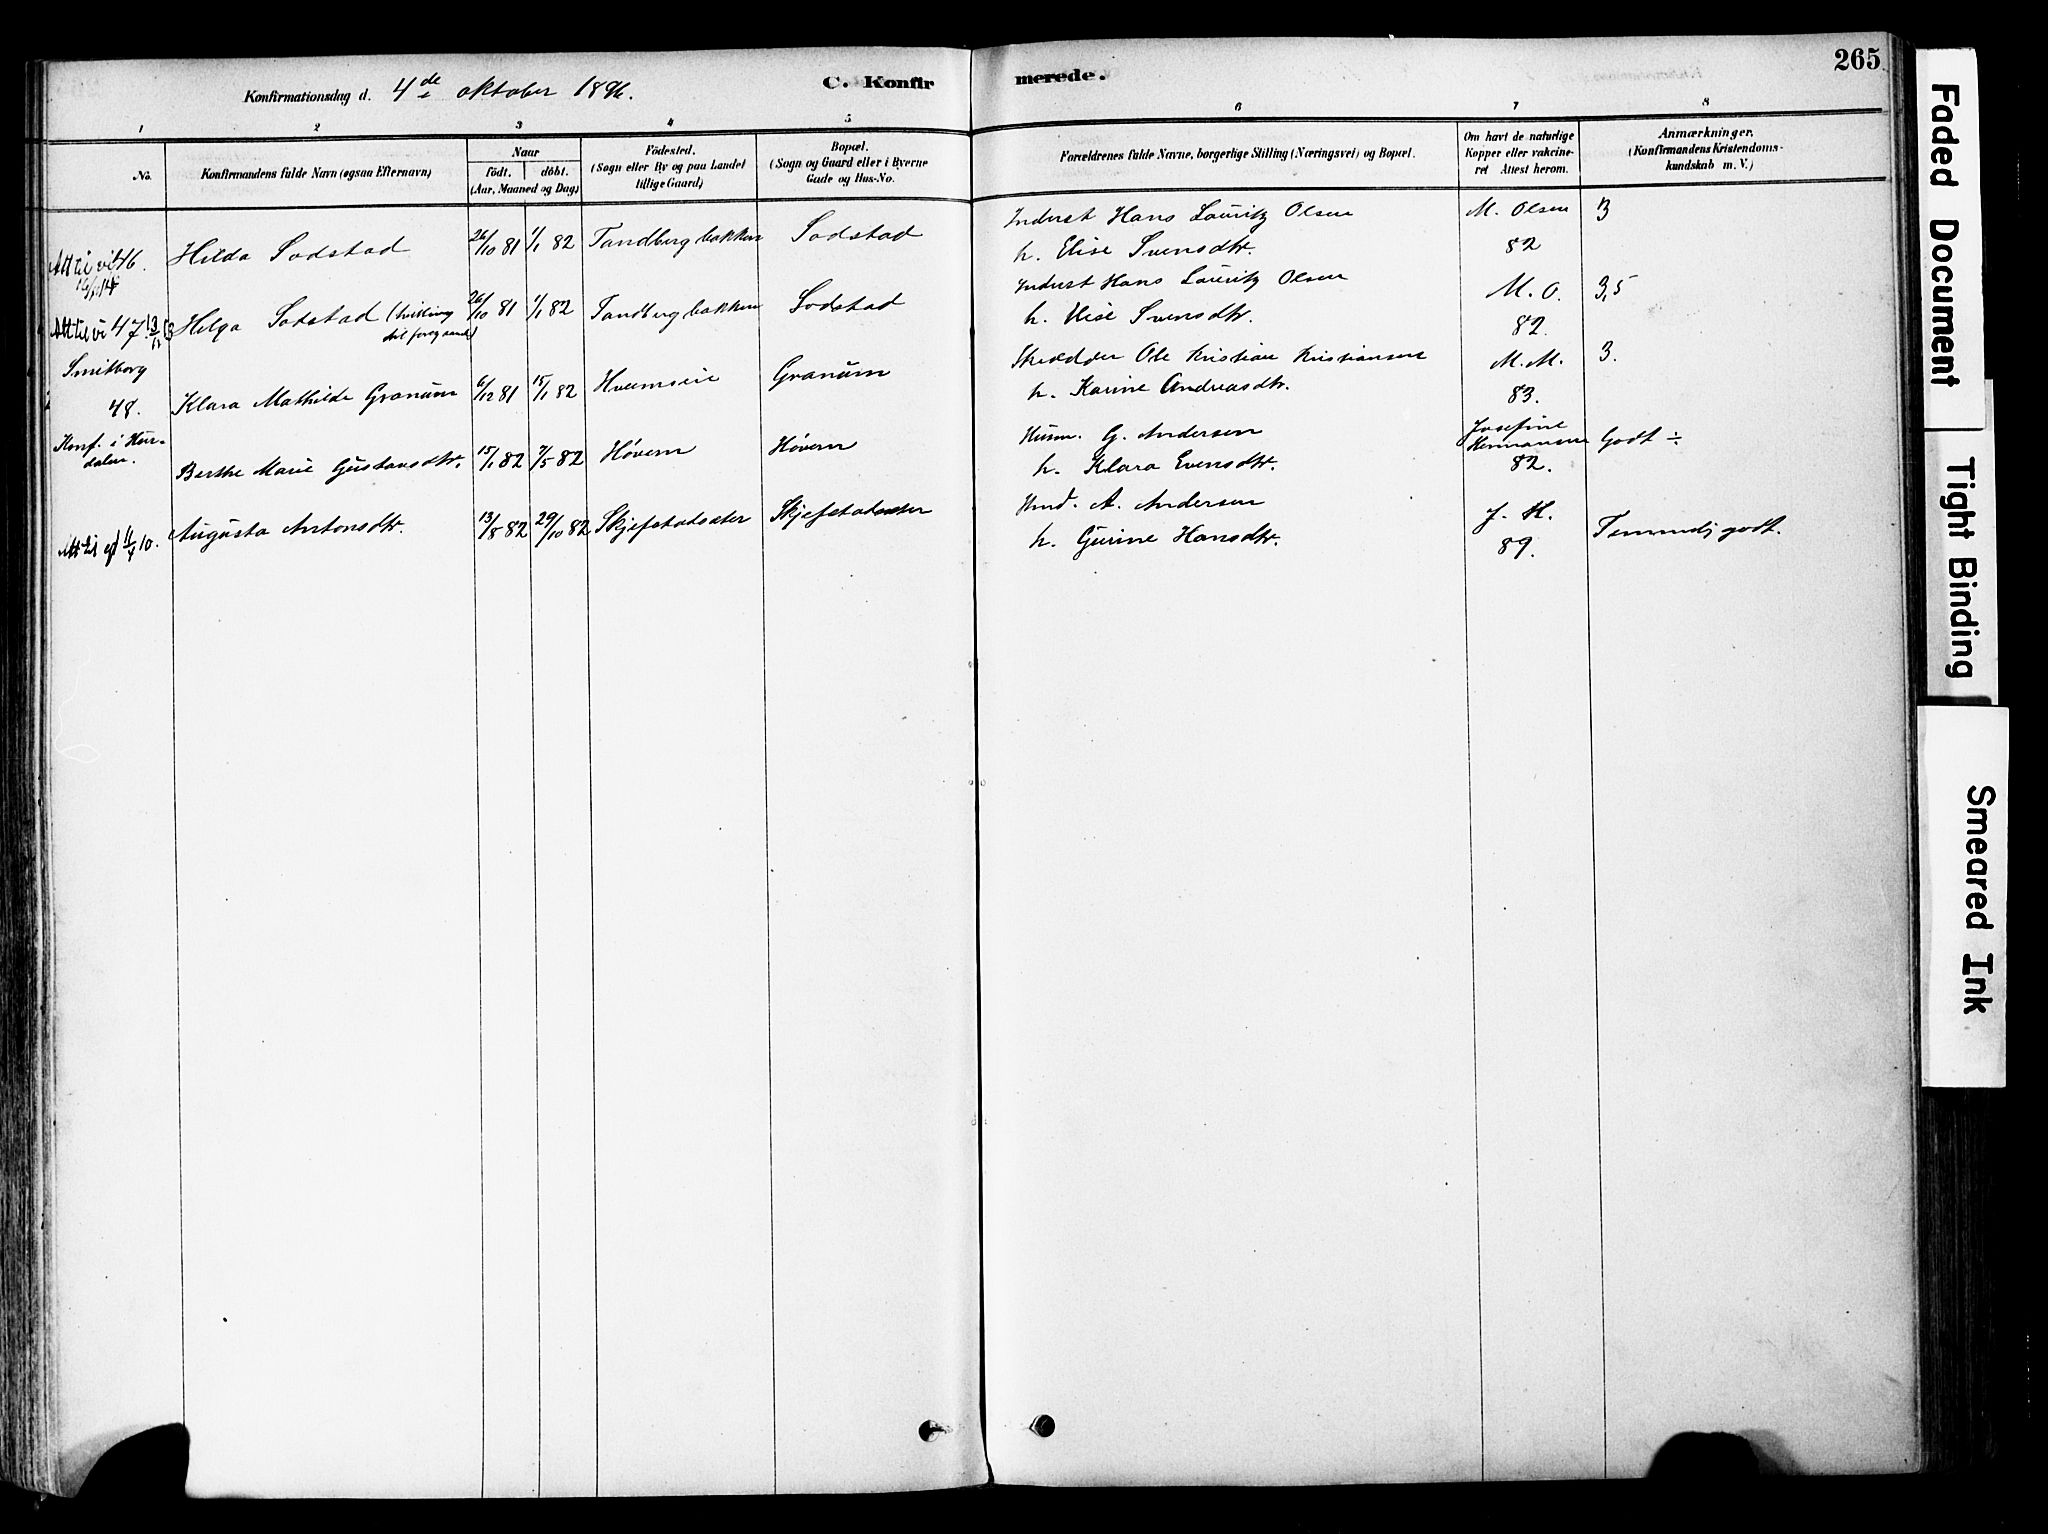 265
Konfirmationsdag d. 4de oktober 1896.
C. Konfirmerede.
1 2 3 4 5 6 7 8
No.
Konfirmandens fulde Navn (ogsaa Efternavn)
Naar
födt. döbt.
(Aar, Maaned og Dag)
Födested.
(Sogn eller By og paa Landet
tillige Gaard)
Bopæl.
(Sogn og Gaard eller i Byerne
Gade og Hus-No.
Forældrenes fulde Navne, borgerlige Stilling (Næringsvei) og Bopæl.
Om havt de naturlige
Kopper eller vakcine-
ret Attest herom.
Anmærkninger.
(Konfirmandens Kristendoms-
kundskab m. V.)
46. Hilda Sodstad 26/10 81 1/1 82 Tandbergbakken Sodstad Inderst Hans Lauritz Olsen M. Olsen 3
Att til vi
h. Elise Svensdtr. 82
Att til vi 47. Helga Sodstad (tvilling 26/10 81 1/1 82 Tandbergbakken Sodstad Inderst Hans Lauritz Olsen M. O. 3,5
til foregaaende)
h. Elise Svensdtr. 82.
Smitborg
48. Klara Mathilde Granum 6/12 81 15/1 82 Hvemseie Granum Skrædder Ole Kristian Kristiansen M. M. 3.
h. Karine Andreasdtr. 83.
Konf. i Hur-
dalen.
Berthe Marie Gustavsdtr. 15/1 82 7/5 82 Høvern Høvern Husm. G. Andersen Josefine
Hermansen Godt ÷
h. Klara Evensdtr. 82.
Augusta Antonsdtr. 13/8 82 29/10 82 Skjefstadsæter Skjefstadsæter Hmd. A. Andersen J. H. Temmelig godt.
h. Gurine Hansdtr. 89.
Faded Document
Tight Binding
Smeared Ink